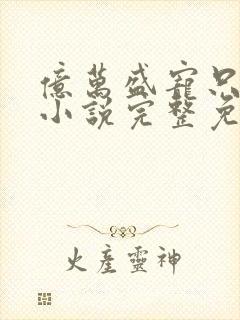 億萬盛寵只
小說完整免
火產靈神